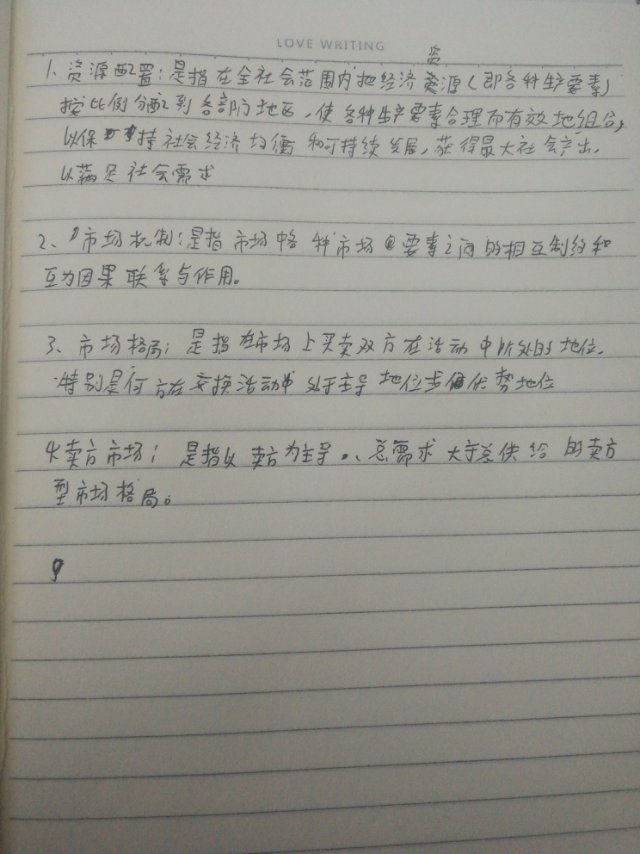 LOVE WRITING
资
1、资源配置:是指在全社会范围内把经济资源(即各种生产要素)
按比例分配到各部门地区,使各种生产要素合理而有效地组合,
以保持社会经济均衡和可持续发展,获得最大社会产出,
以满足社会需求
2、市场机制:是指市场中各种市场要素之间的相互制约和
互为因果联系与作用。
3、市场格局:是指在市场上买卖双方在活动中所处的地位,
特别是何方在交换活动中处于主导地位 优势地位
4、卖方市场:是指以卖方为主导、总需求大于总供给的卖方
型市场格局。